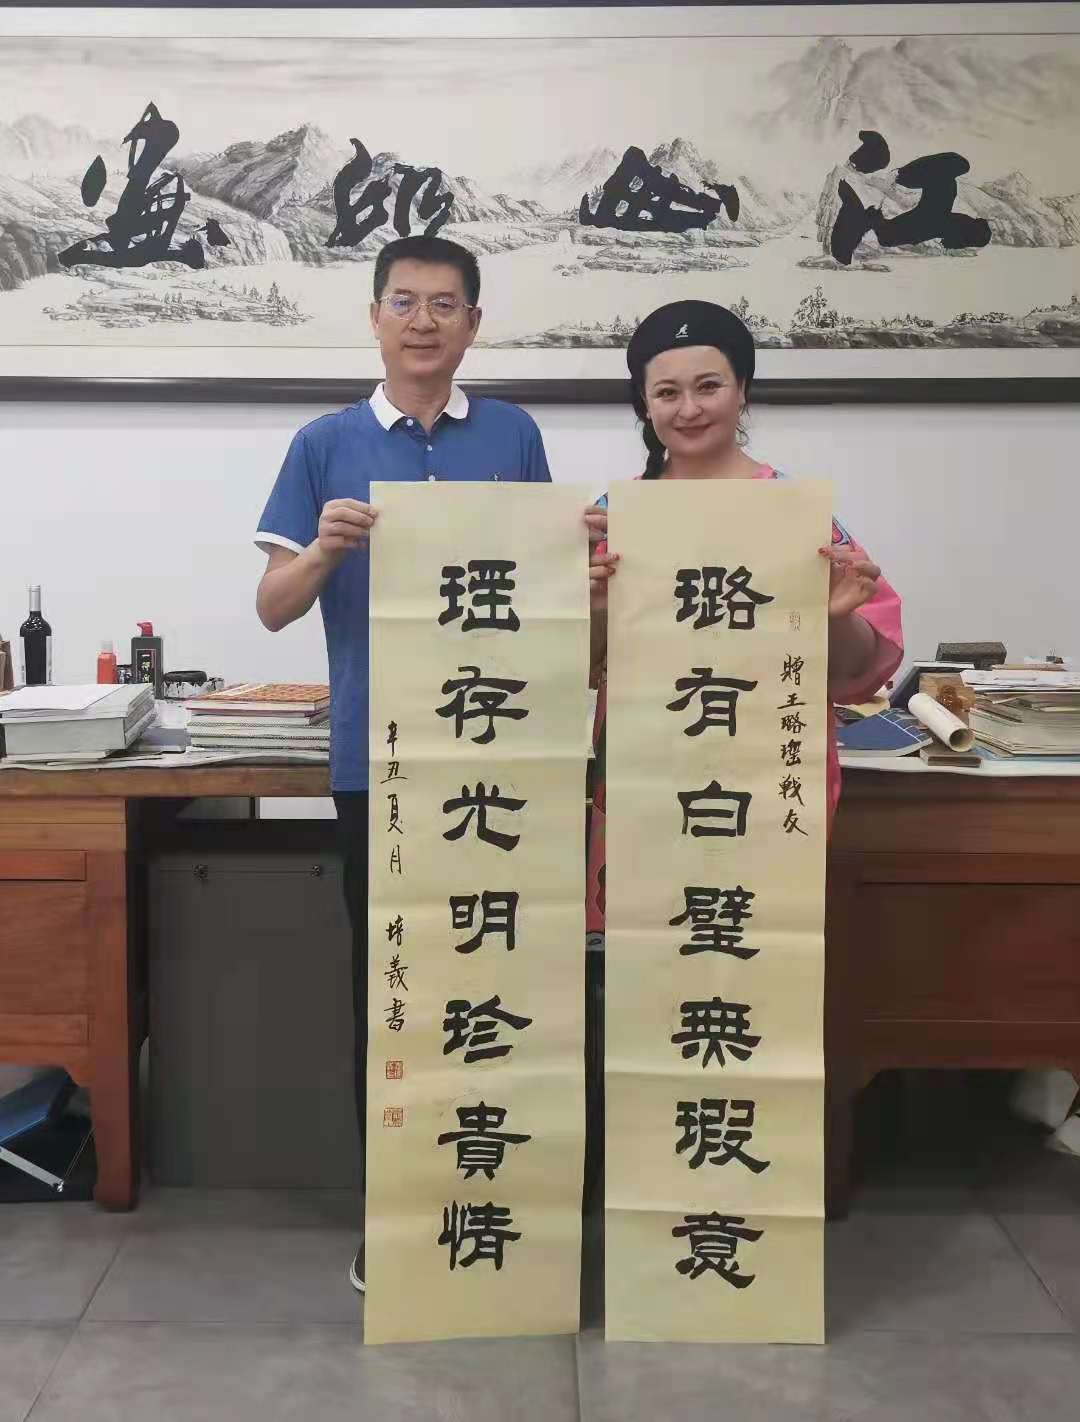 江山如畫
璐有白璧無瑕意
贈王璐瑤戰友
瑤存光明珍貴情
辛丑夏月 培義書